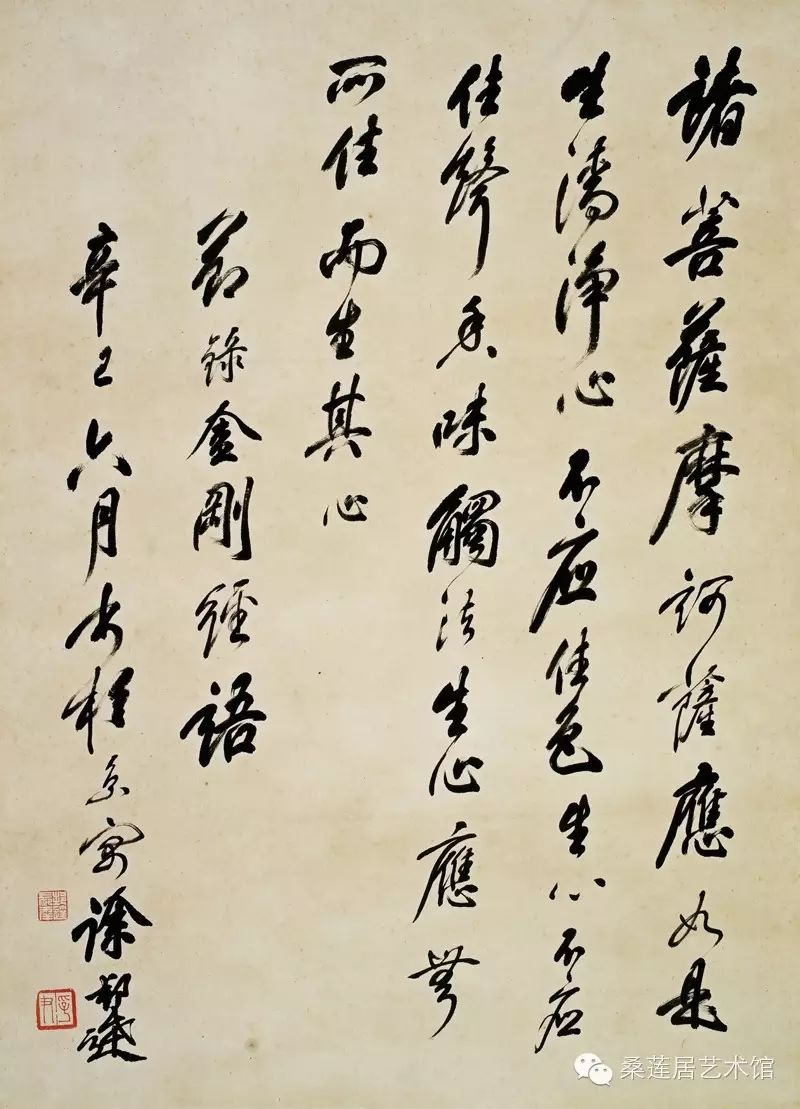 諸菩薩摩訶薩應如是
生清淨心不應住色生心不應
住聲香味觸法生心應無
所住而生其心
節錄金剛經語
辛巳六月書於京寓徐邦達
孚尹
桑莲居艺术馆